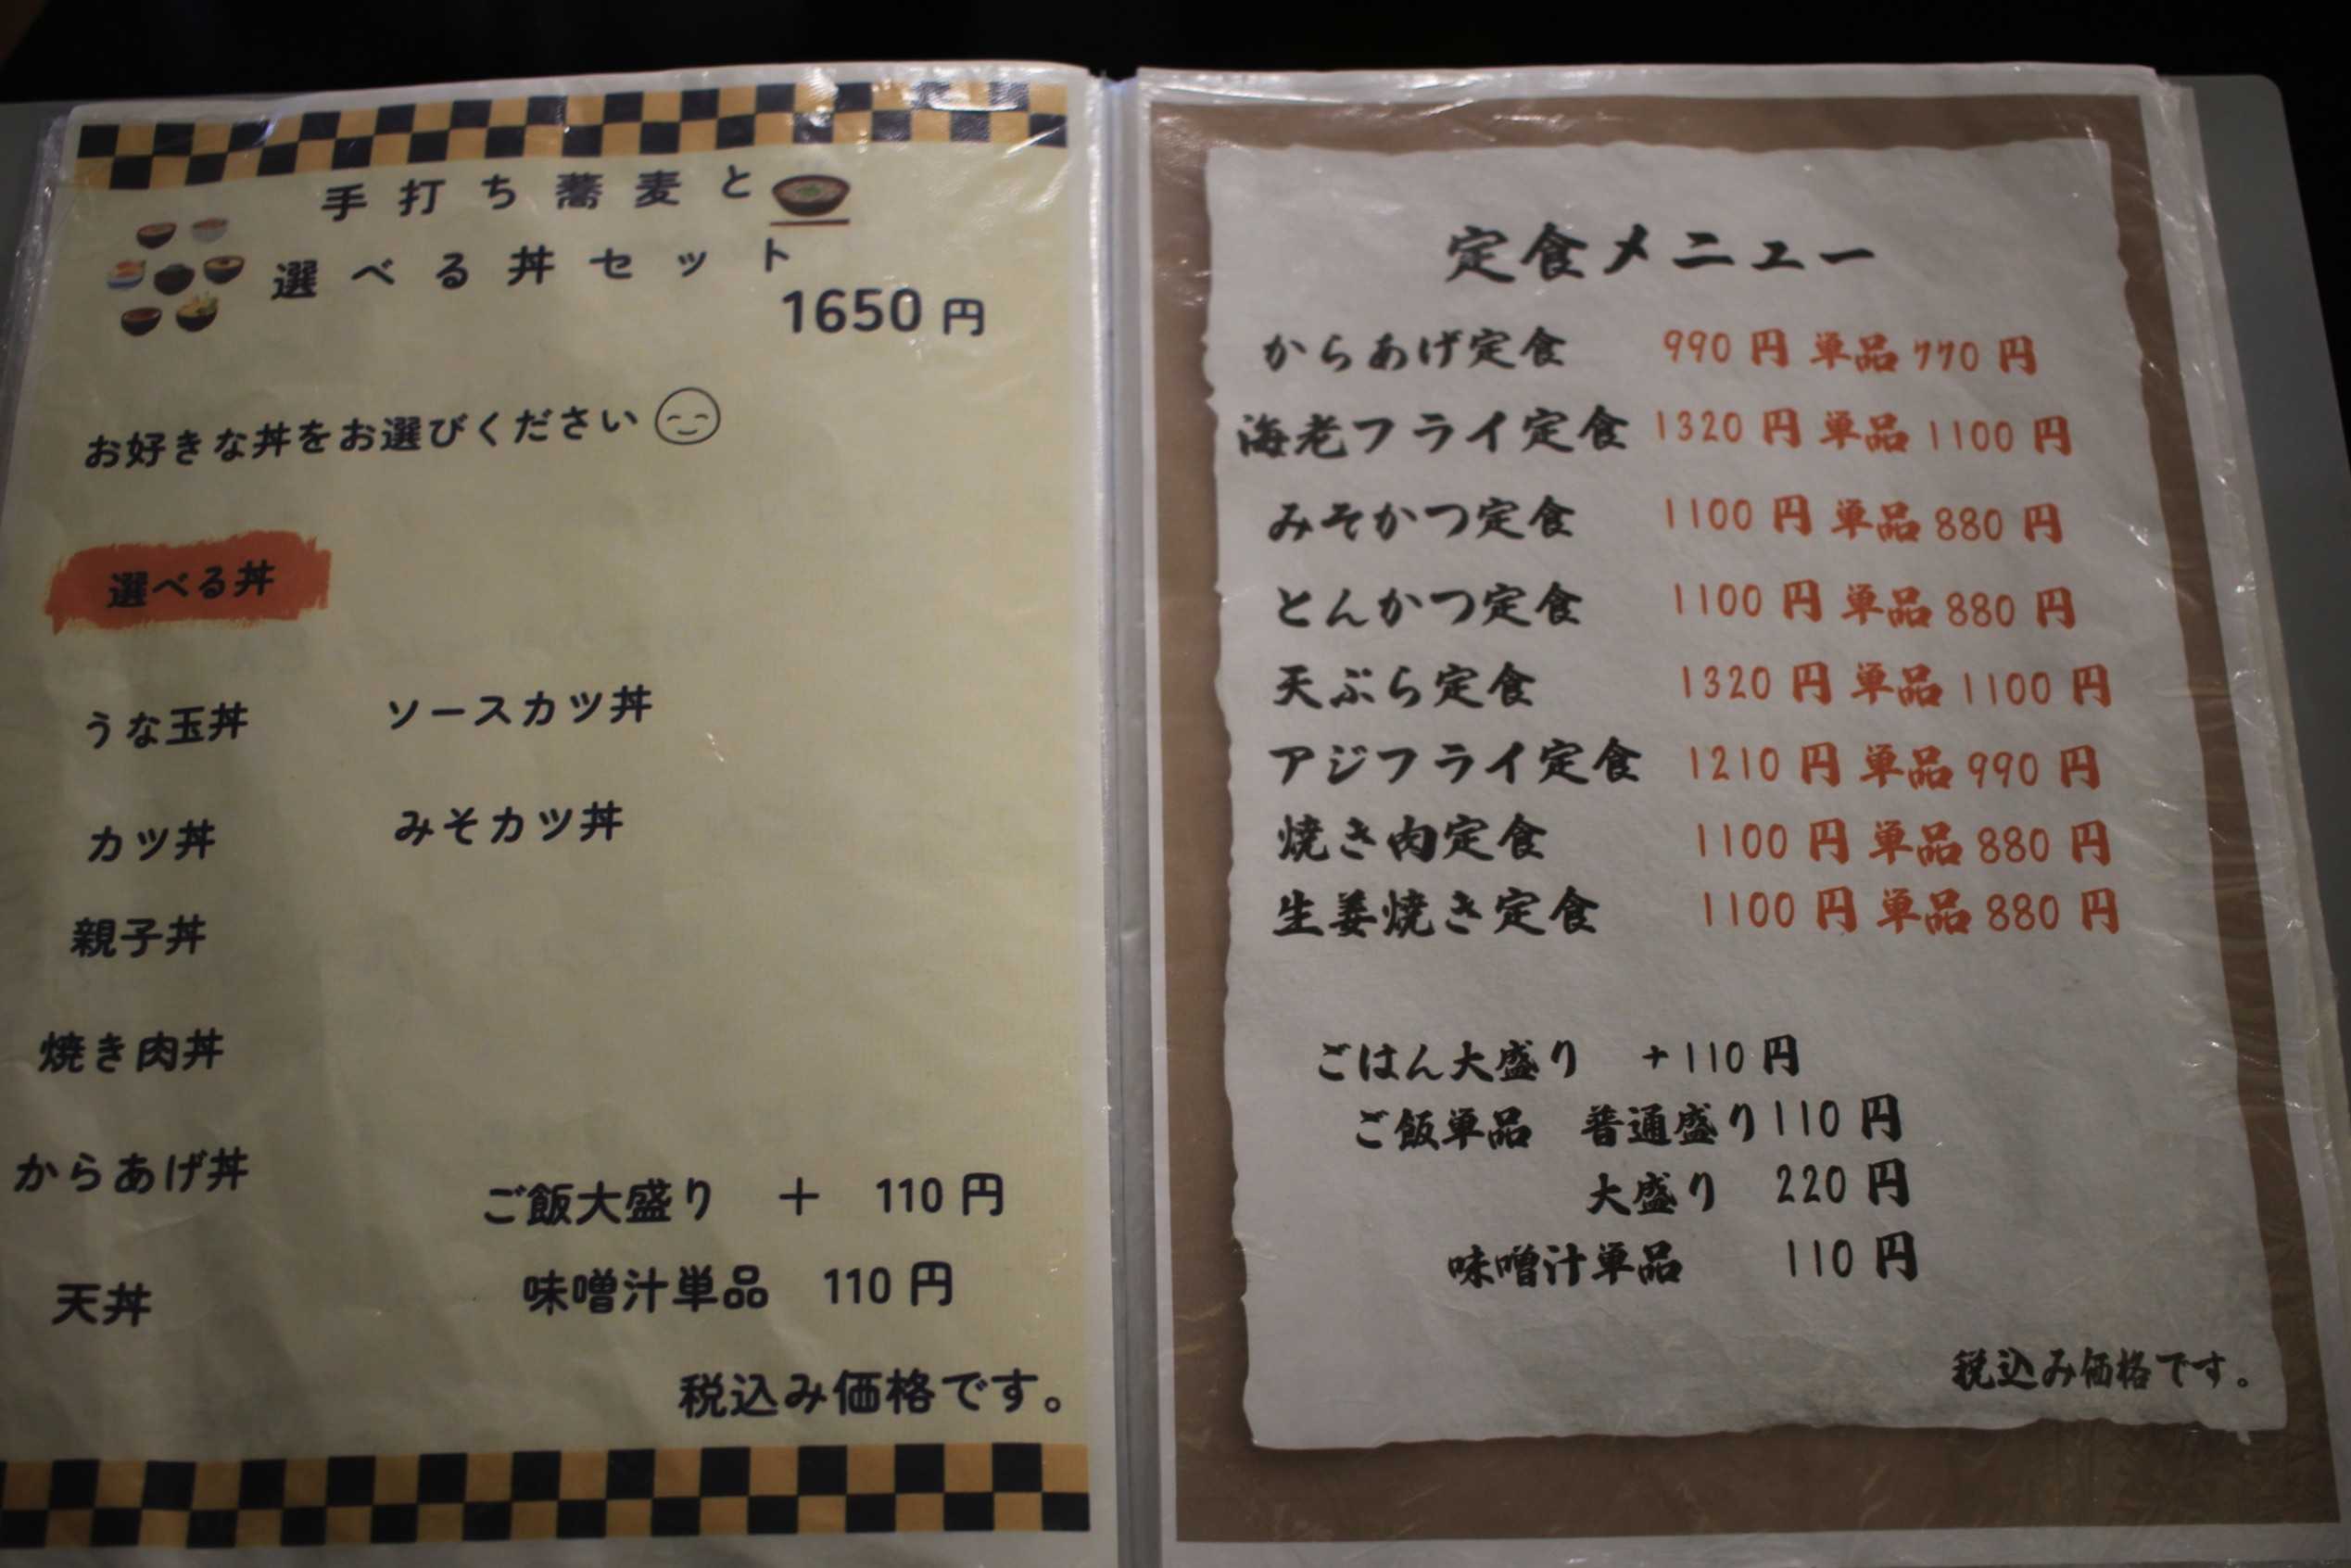 手打ち蕎麦と
選べる丼セット
1650円
お好きな丼をお選びください
選べる丼
うな玉丼 ソースカツ丼
カツ丼 みそカツ丼
親子丼
焼き肉丼
からあげ丼
天丼
ご飯大盛り + 110円
味噌汁単品 110円
税込み価格です。
定食メニュー
からあげ定食 990円 単品770円
海老フライ定食 1320円 単品1100円
みそかつ定食 1100円 単品880円
とんかつ定食 1100円 単品880円
天ぷら定食 1320円 単品1100円
アジフライ定食 1210円 単品990円
焼き肉定食 1100円 単品880円
生姜焼き定食 1100円 単品880円
ごはん大盛り +110円
ご飯単品 普通盛り110円
大盛り 220円
味噌汁単品 110円
税込み価格です。